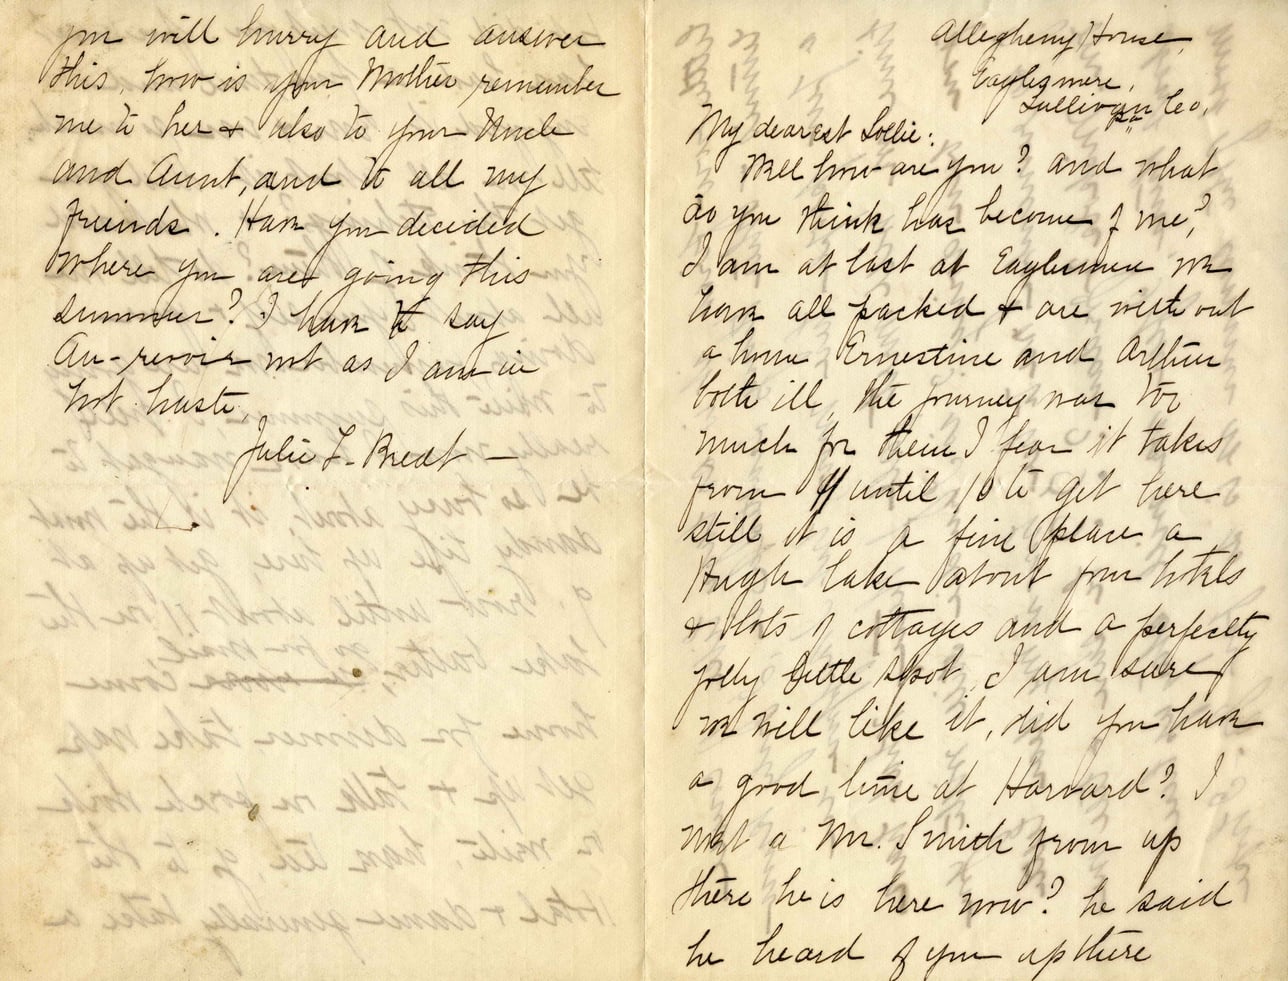 Allegheny House,
Eaglesmere,
Sullivan Co,
Pa
My dearest Lollie:
Well how are you? and what
do you think has become of me?
I am at last at Eaglesmere we
have all packed & are without
a home Ernestine and Arthur
both ill, the journey was too
much for them I fear it takes
from 11 until 10 to get here
still it is a fine place a
Hugh lake about four hotels
& lots of cottages and a perfectly
jolly little spot, I am sure
we will like it, did you have
a good time at Harvard? I
met a Mr. Smith from up
there he is here now? he said
he heard of you up there
you will hurry and answer
this, how is your Mother remember
me to her & also to your Uncle
and Aunt, and to all my
friends. Have you decided
where you are going this
summer? I have to say
Au-revoir not as I am in
hot haste
Julie L. Bredt —